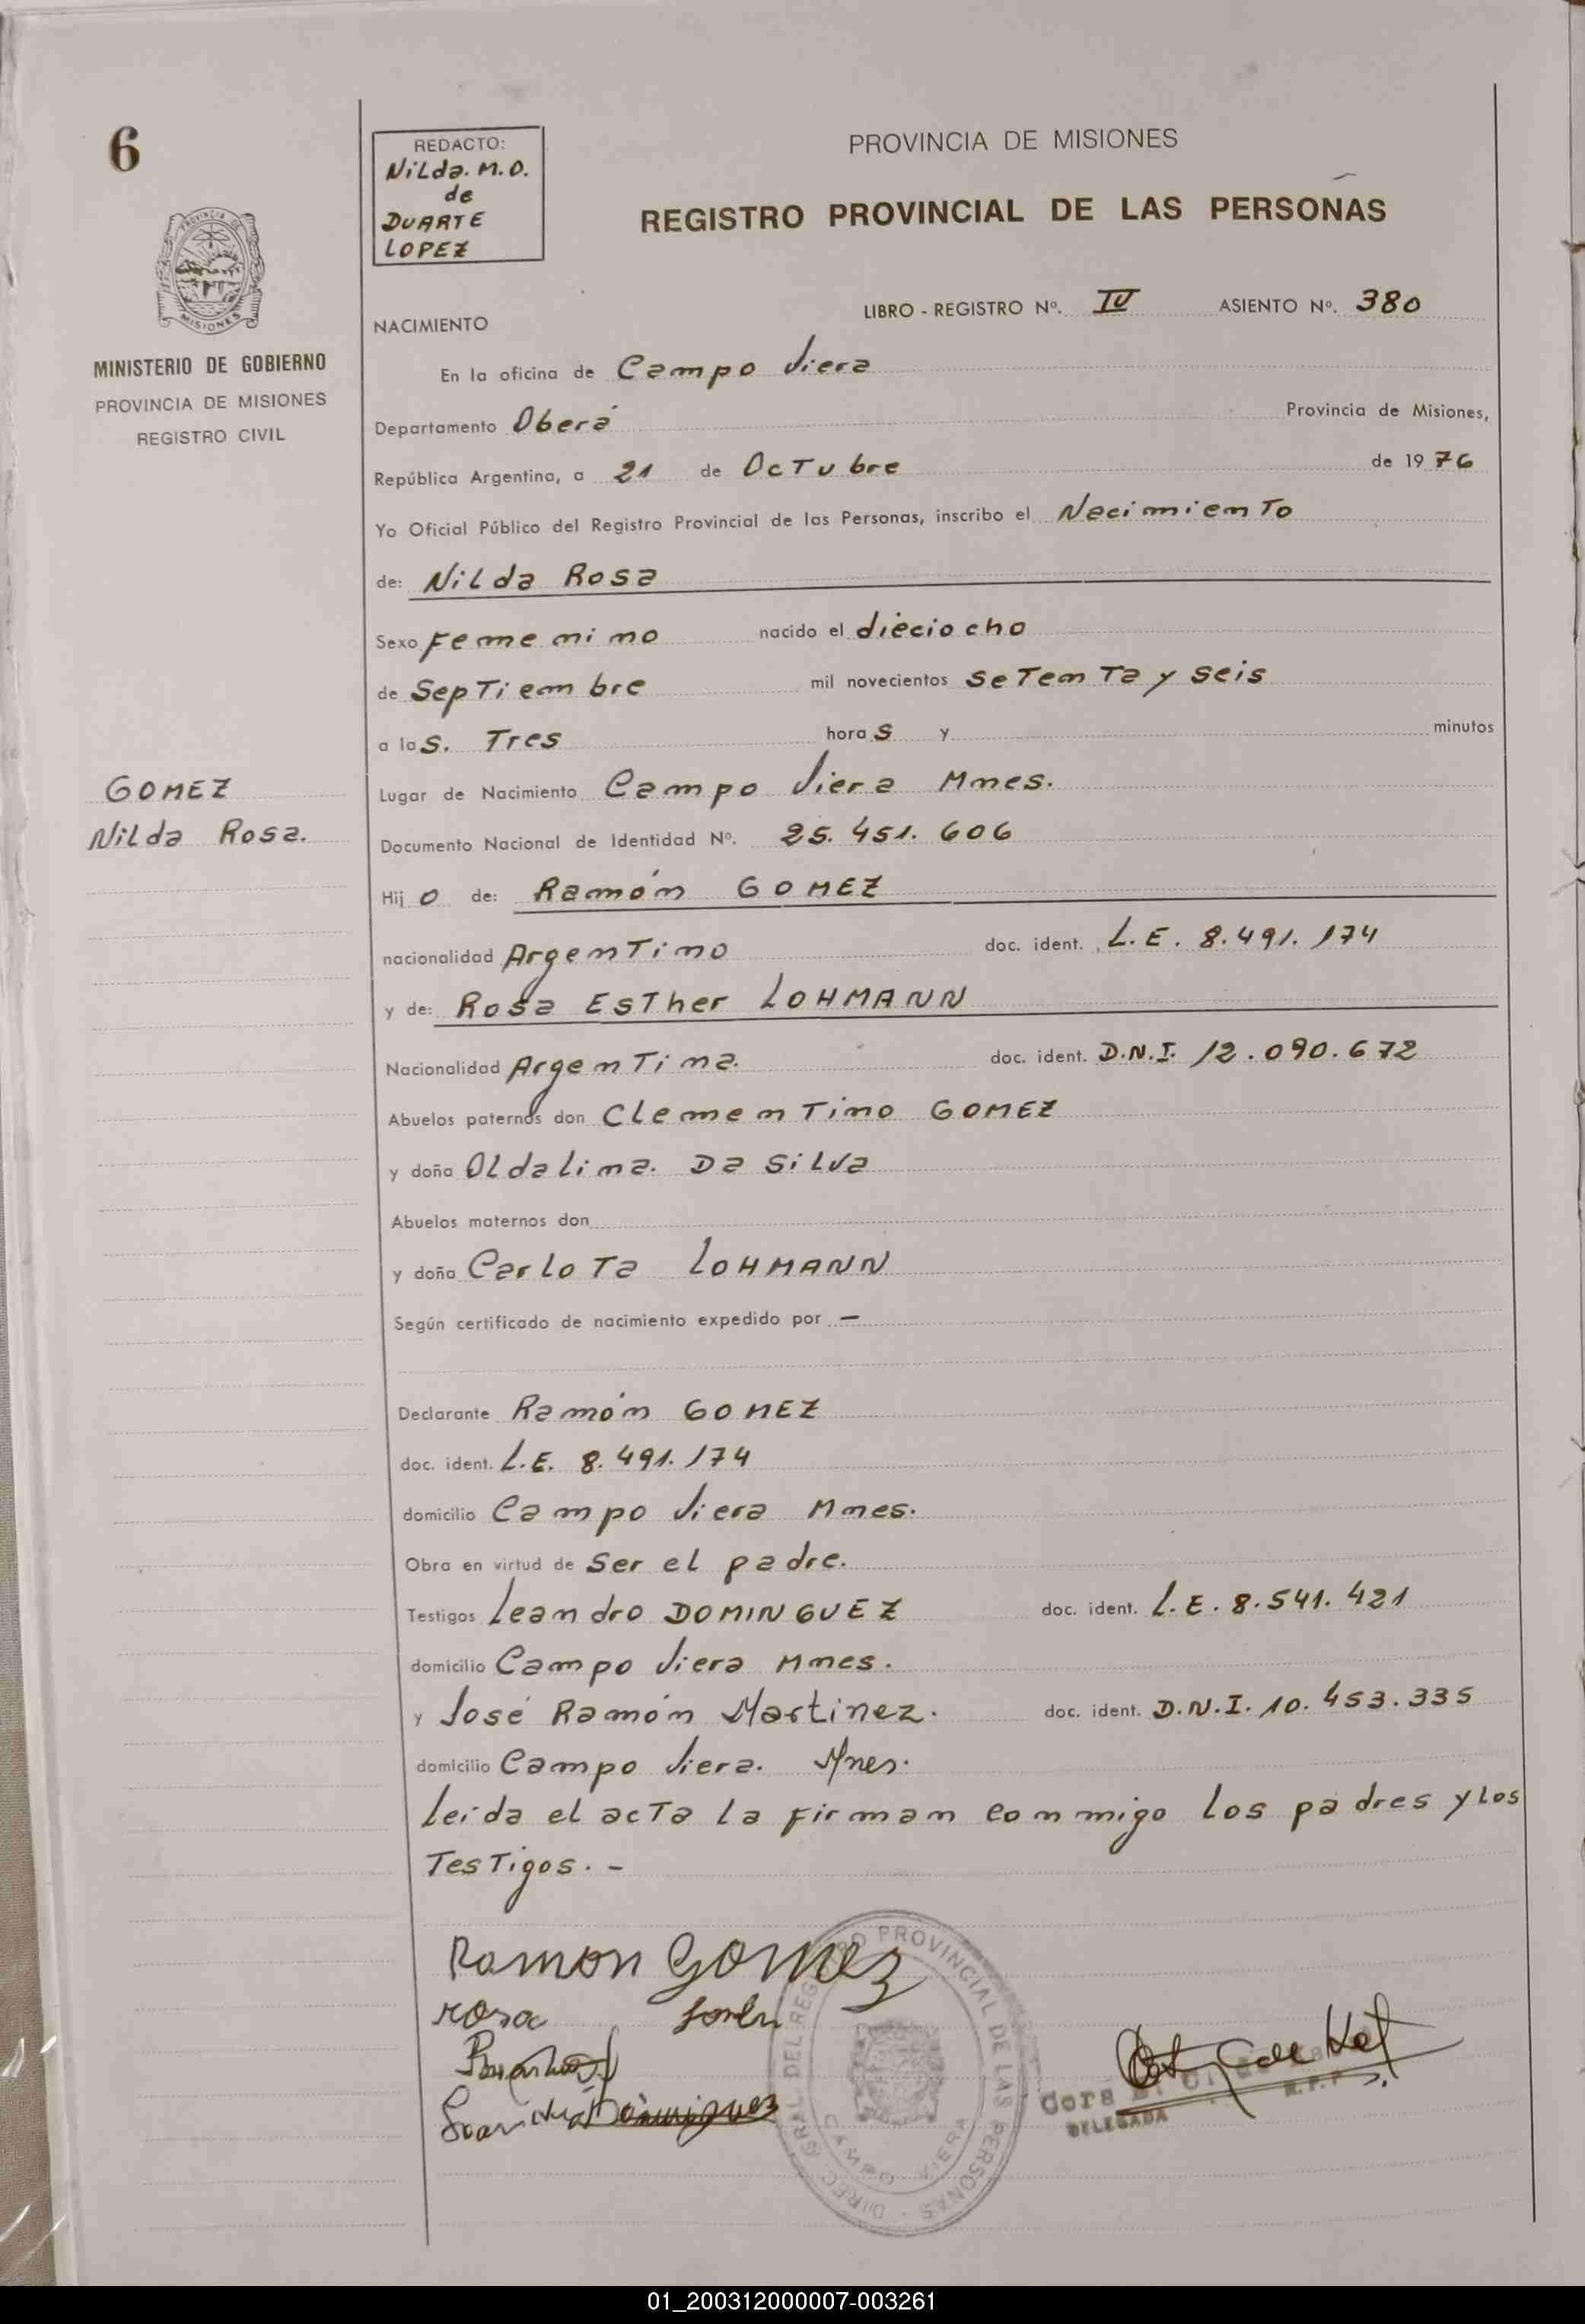 6
REDACTO:
Nilda. M.O.
de
DUARTE
LOPEZ
PROVINCIA DE MISIONES
REGISTRO PROVINCIAL DE LAS PERSONAS
MISIONES
MINISTERIO DE GOBIERNO
PROVINCIA DE MISIONES
REGISTRO CIVIL
NACIMIENTO
LIBRO - REGISTRO Nº. IV ASIENTO Nº. 380
En la oficina de Campo Viera
Departamento Oberá Provincia de Misiones,
República Argentina, a 21 de Octubre de 1976
Yo Oficial Público del Registro Provincial de las Personas, inscribo el Nacimiento
de: Nilda Rosa
Sexo Femenino nacido el dieciocho
de Septiembre mil novecientos setenta y seis
a las. Tres horas y minutos
GOMEZ
Nilda Rosa.
Lugar de Nacimiento Campo Viera Mnes.
Documento Nacional de Identidad Nº. 25.451.606
Hijo de: Ramón GOMEZ
nacionalidad Argentino doc. ident. L.E. 8.491.174
y de: Rosa Esther LOHMANN
Nacionalidad Argentina. doc. ident. D.N.I. 12.090.672
Abuelos paternos don Clementino GOMEZ
y doña Oldalina. Da Silva
Abuelos maternos don
y doña Carlota LOHMANN
Según certificado de nacimiento expedido por —
Declarante Ramón GOMEZ
doc. ident. L.E. 8.491.174
domicilio Campo Viera Mnes.
Obra en virtud de ser el padre.
Testigos Leandro DOMINGUEZ doc. ident. L.E. 8.541.421
domicilio Campo Viera Mnes.
y José Ramón Martinez. doc. ident. D.N.I. 10.453.335
domicilio Campo Viera. Mnes.
leída el acta la firman conmigo los padres y los
Testigos. -
Ramon Gomez
rosa
Dominguez
DIREC. GRAL. DEL REGISTRO PROVINCIAL DE LAS PERSONAS
CAMPO VIERA
DELEGADA
01_200312000007-003261